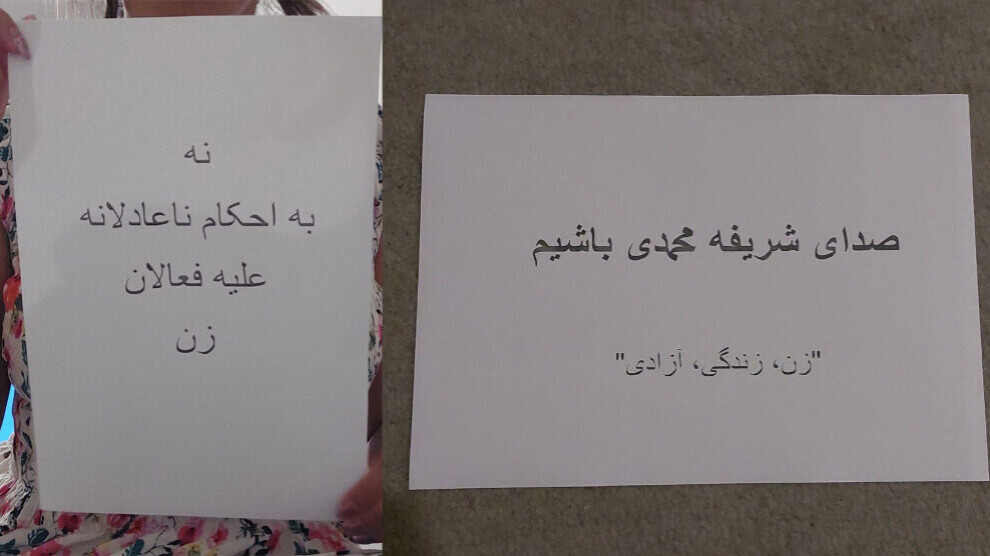 نه
به احکام ناعادلانه
علیه فعالان
زن
صدای شریفه محمدی باشیم
"زن، زندگی، آزادی"